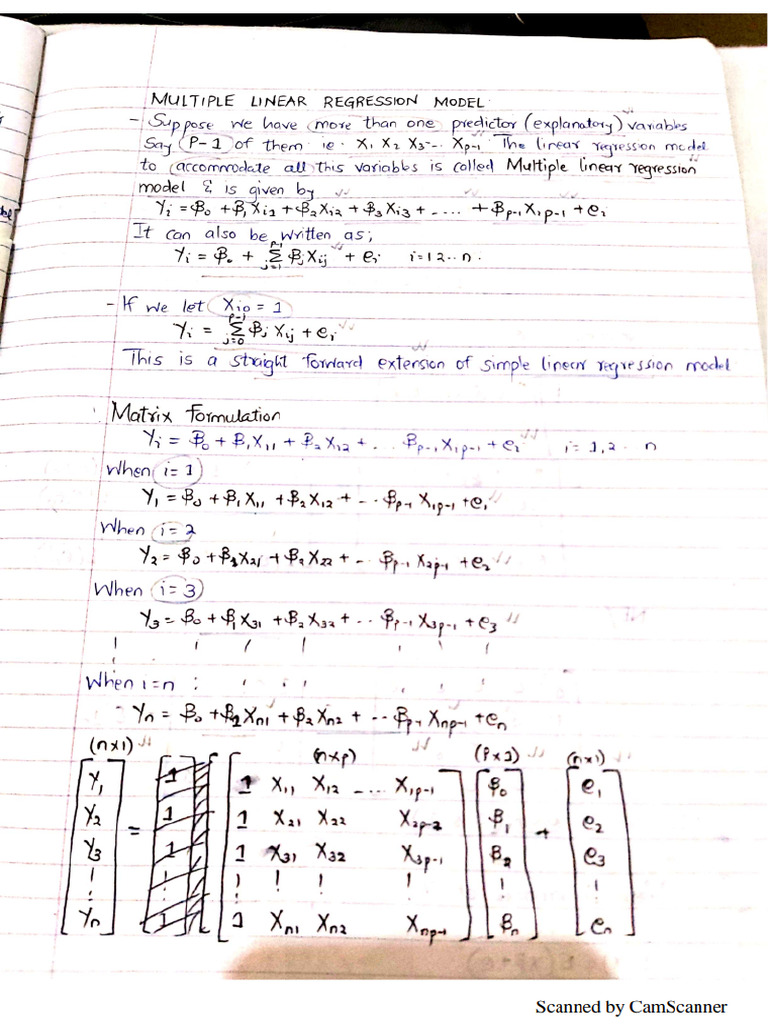 MULTIPLE LINEAR REGRESSION MODEL.
- Suppose we have more than one predictor (explanatory) variables
Say P-1 of them ie X₁ X₂ X₃--- Xp-1. The linear regression model
to accommodate all this variables is called Multiple linear regression
model & is given by
Yi = β₀ + β₁Xi1 + β₂Xi2 + β₃Xi3 + ..... + βp-1 X1p-1 + ei
It can also be written as;
Yi = β₀ + Σ(j=1 to p-1) βj Xij + ei i=1 2 .. n.
- If we let Xi0 = 1
Yi = Σ(j=0 to p-1) βj Xij + ei
This is a straight forward extension of simple linear regression model
Matrix Formulation
Yi = β₀ + β₁X11 + β₂X12 + ... βp-1 X1p-1 + ei i= 1,2 .. n
When i=1
Y₁ = β₀ + β₁X11 + β₂X12 + -- βp-1 X1p-1 + e₁
When i=2
Y₂ = β₀ + β₁X21 + β₂X22 + -- βp-1 X2p-1 + e₂
When i=3
Y₃ = β₀ + β₁X31 + β₂X32 + -- βp-1 X3p-1 + e₃
When i=n
Yn = β₀ + β₁Xn1 + β₂Xn2 + -- βp-1 Xnp-1 + en
(n×1) (n×p) (P×1) (n×1)
Y₁ 1 1 X11 X12 -... X1p-1 β₀ e₁
Y₂ = 1 1 X21 X22 X2p-2 β₁ + e₂
Y₃ 1 1 X31 X32 X3p-1 β₂ e₃
Yn 1 1 Xn1 Xn2 Xnp-1 βn en
Scanned by CamScanner